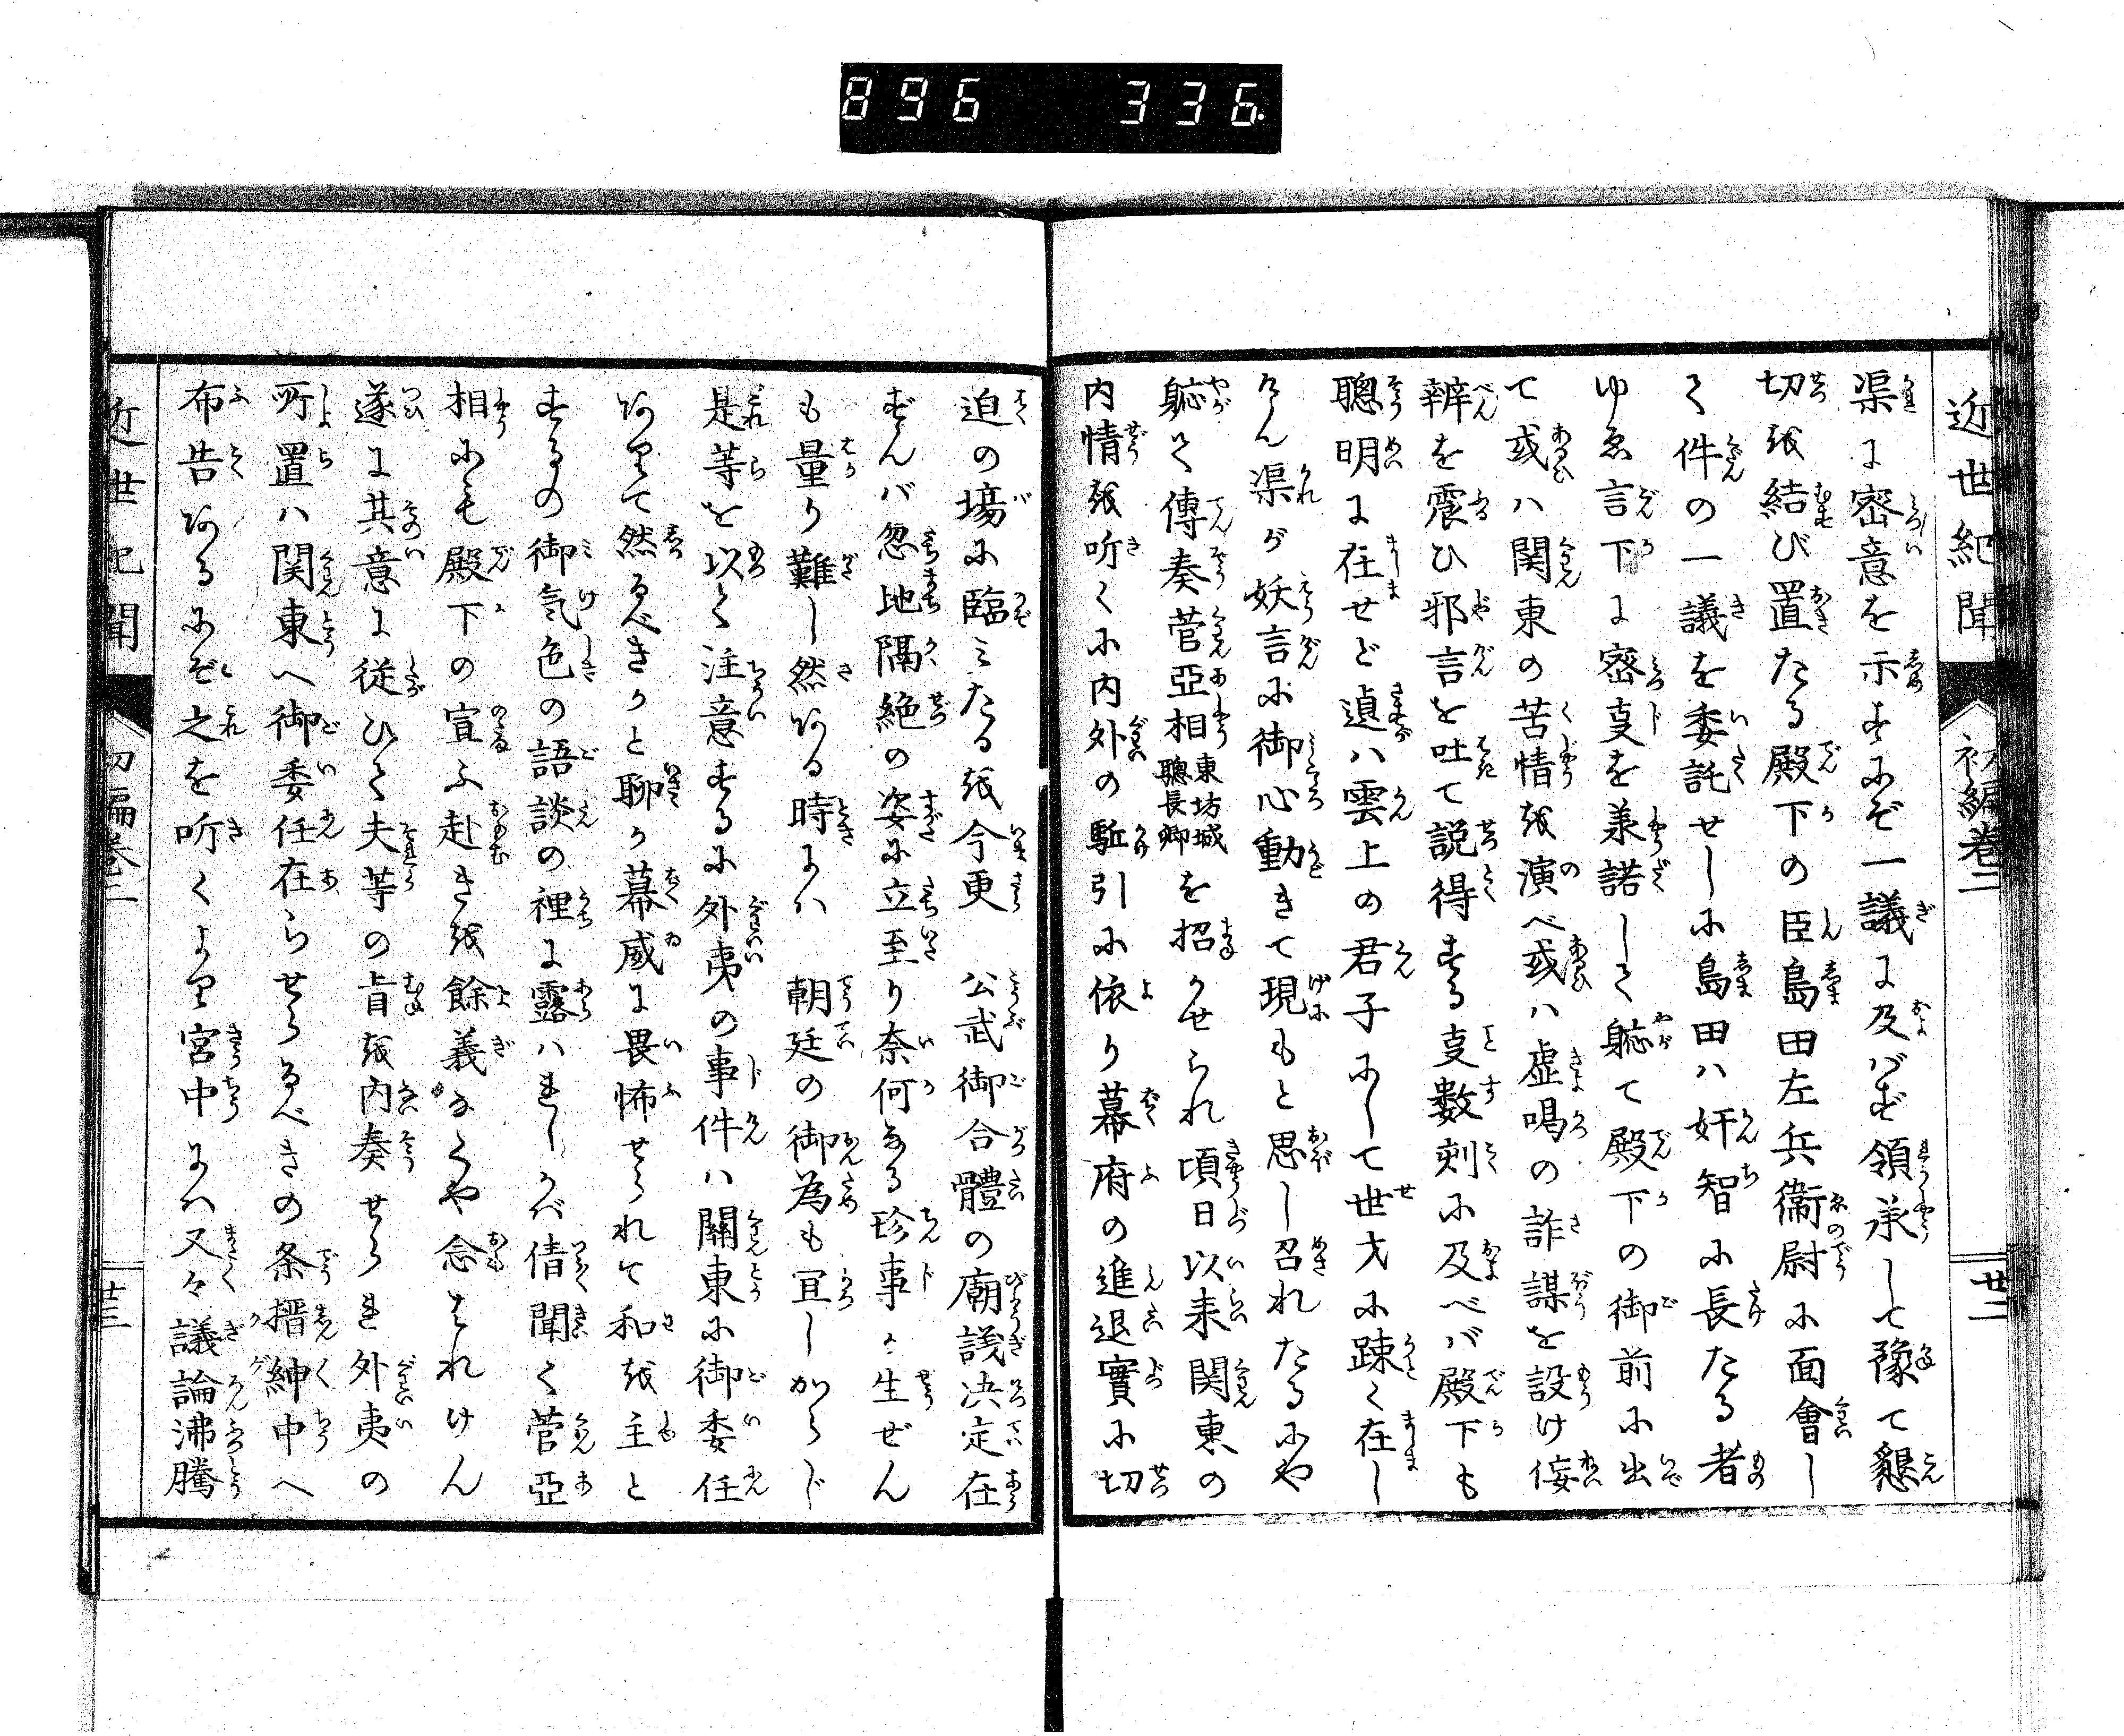 896 336
近世紀聞 初編巻二 廿二
渠に密意を示すにぞ一議に及バず領承して豫て懇
切を結び置たる殿下の臣島田左兵衞尉に面會し
て件の一議を委託せしに島田ハ奸智に長たる者
ゆゑ言下に密支を兼諾して躬て殿下の御前に出
て或ハ関東の苦情を演べ或ハ虚喝の詐謀を設け侫
辨を震ひ邪言を吐て説得する支數刻に及べバ殿下も
聰明に在せど遉ハ雲上の君子にして世才に踈く在し
けん渠が妖言に御心動きて現もと思し召れたるにや
躬て傳奏菅亞相東坊城聰長卿を招かせられ頃日以来関東の
内情を听くに内外の駈引に依り幕府の進退實に切
迫の場に臨ミたるを今更　公武御合體の廟議决定在
ずんバ忽地隔絶の姿に立至り奈何なる珍事ヾ生ぜん
も量り難し然ある時にハ　朝廷の御為も宜しからじ
是等を以て注意するに外夷の事件ハ關東に御委任
ありて然るべきかと聊か幕威に畏怖せられて和を主と
するの御気色の語談の裡に露ハれしかバ倩聞く菅亞
相にも殿下の宣ふ赴きを餘義なくや念はれけん
遂に其意に從ひて夫等の旨を内奏せられ外夷の
所置ハ関東へ御委任在らせらるべきの条搢紳中へ
布告あるにぞ之を听くより宮中にハ又々議論沸騰
近世紀聞 初編巻二 廿三